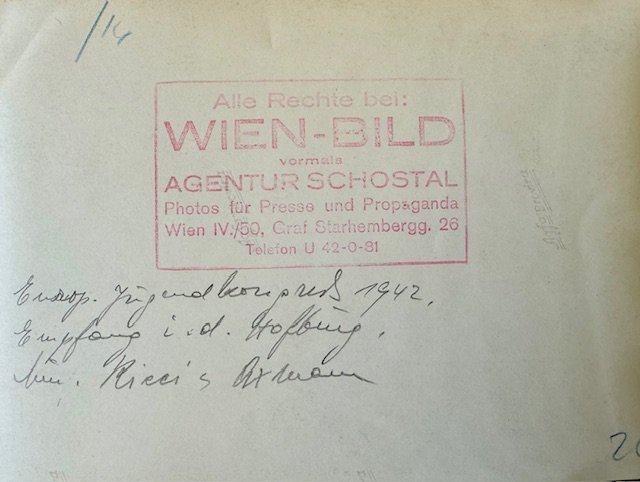 /14
Alle Rechte bei:
WIEN-BILD
vormals
AGENTUR SCHOSTAL
Photos für Presse und Propaganda
Wien IV./50, Graf Starhembergg. 26
Telefon U 42-0-81
Europ. Jugendkongreß 1942.
Empfang i. d. Hofburg.
Min. Ricci u Axmann